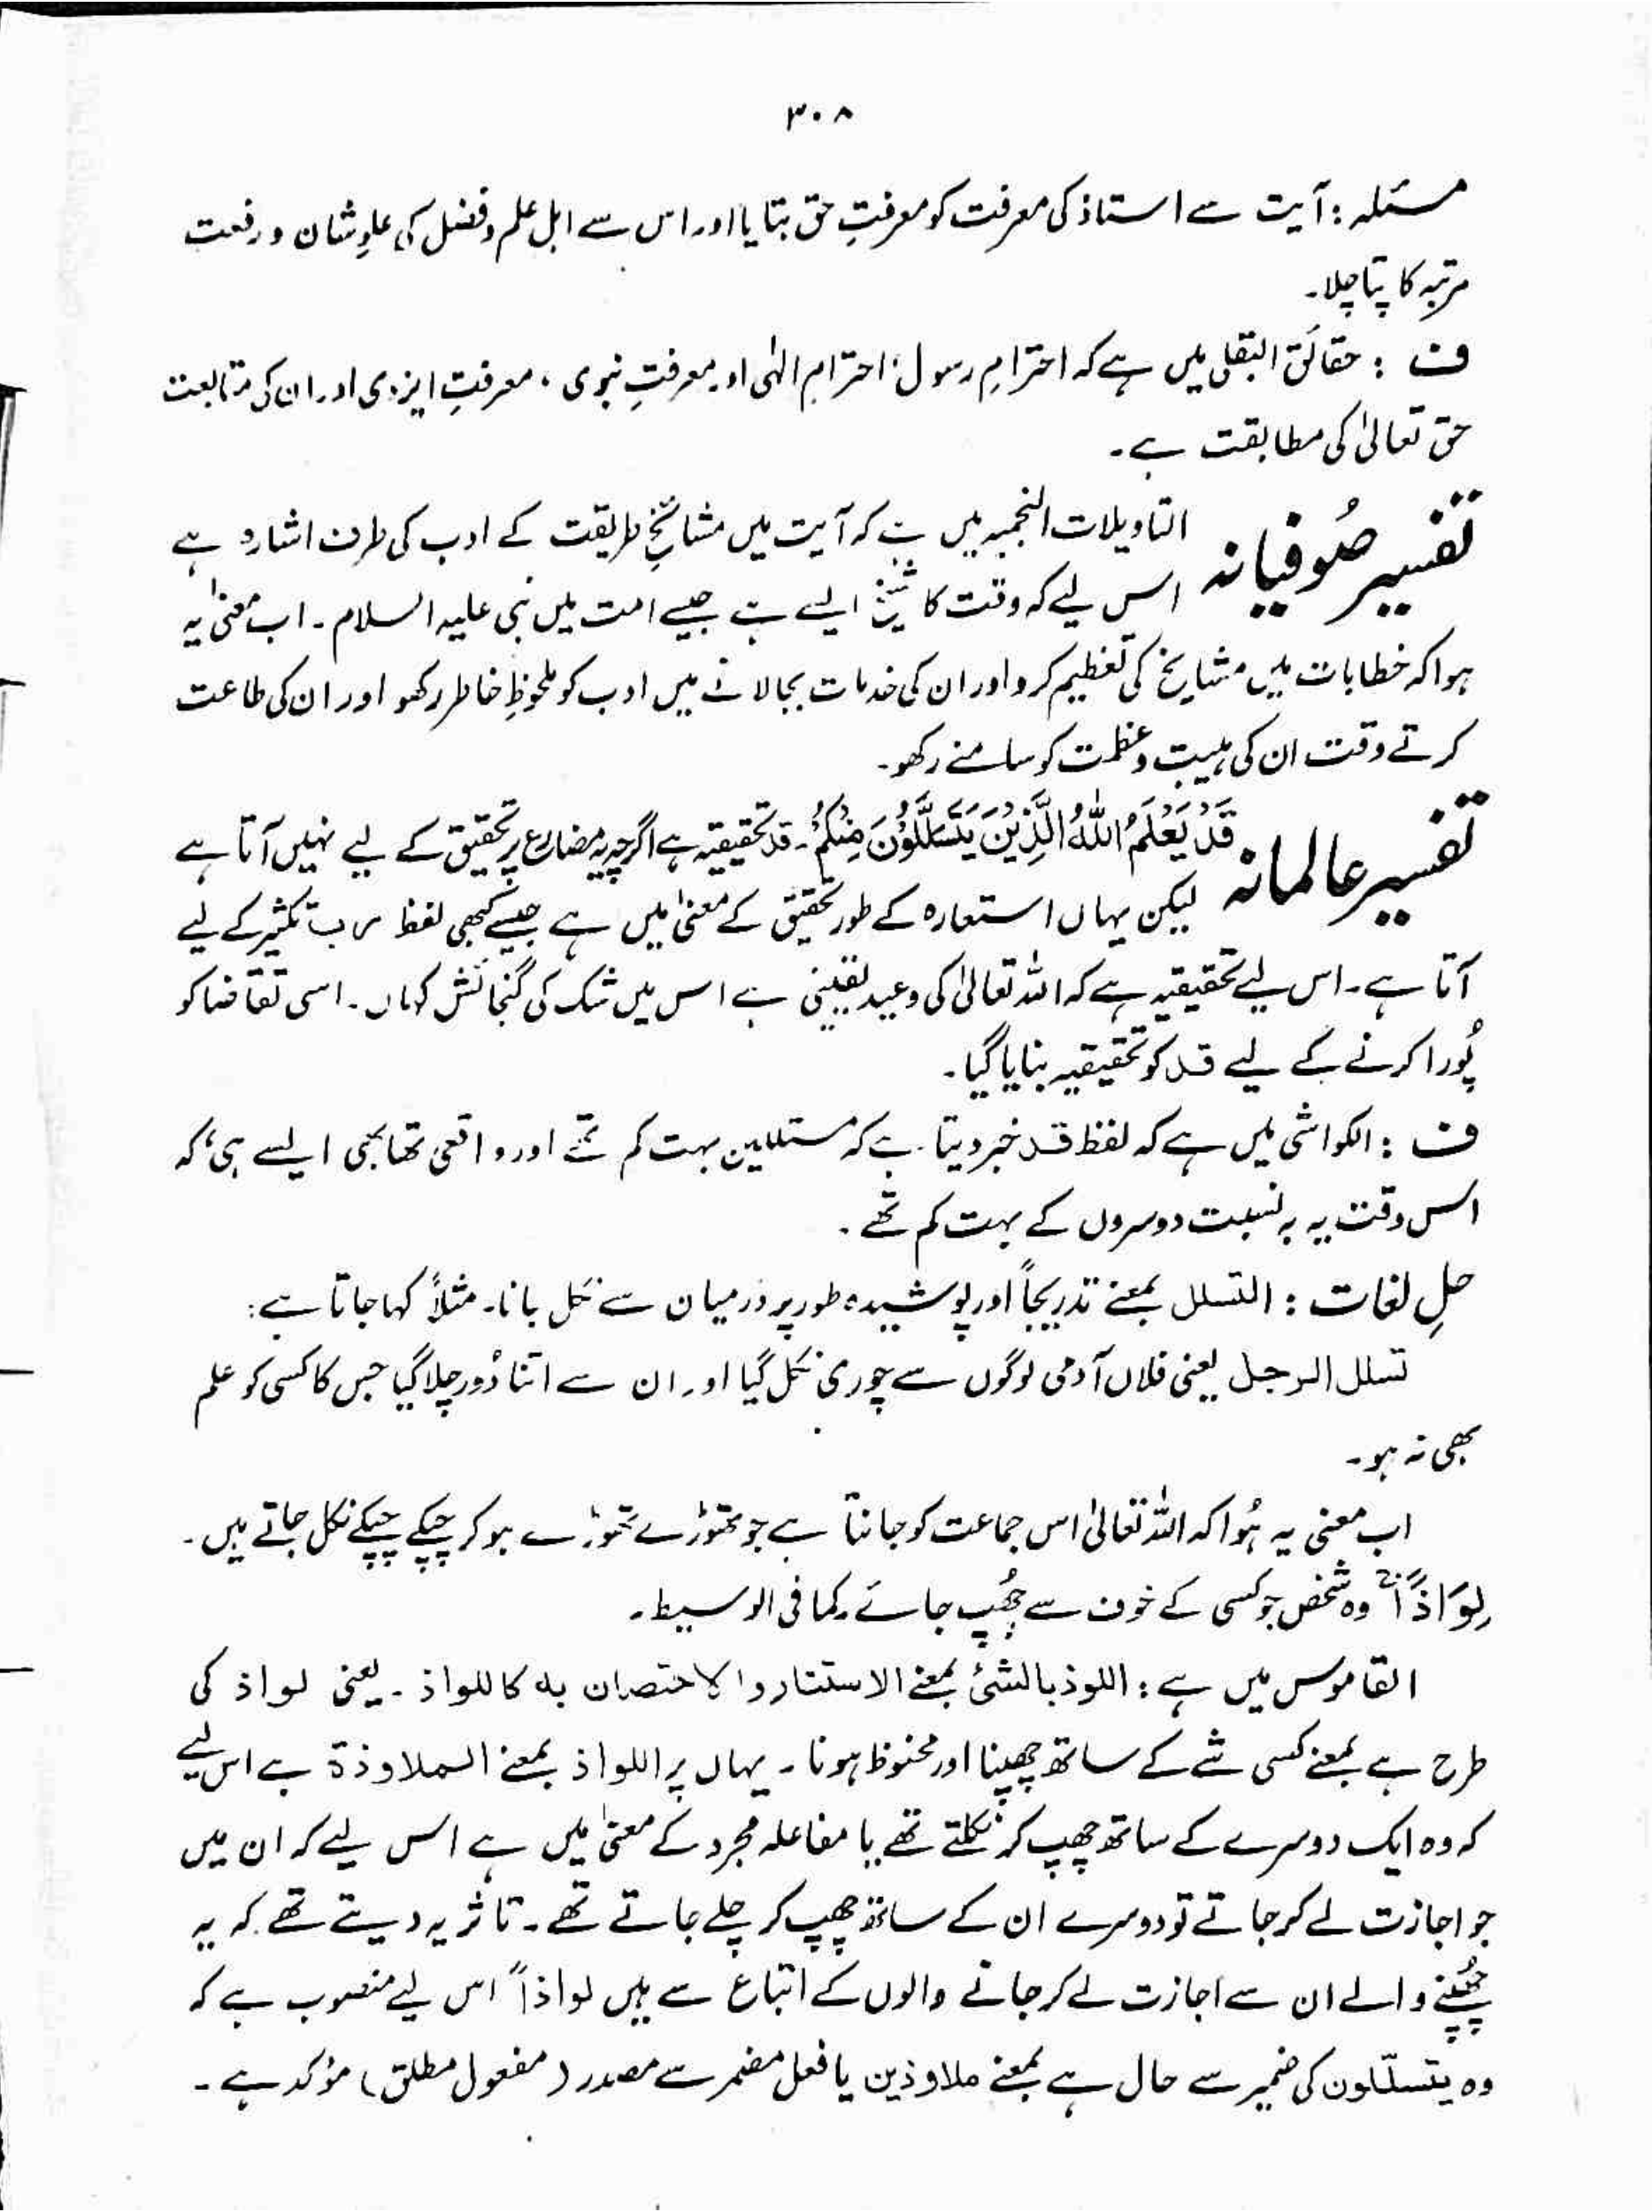 ۳۰۸
مسئلہ : آیت سے استاذ کی معرفت کو معرفتِ حق بتایا اور اس سے اہل علم و فضل کی علوِ شان و رفعت
مرتبہ کا پتا چلا۔
ف : حقائق البقلی میں ہے کہ احترامِ رسول، احترامِ الٰہی اور معرفتِ نبوی ، معرفتِ ایزدی اور ان کی متابعت
حق تعالیٰ کی مطابقت ہے۔
تفسیر صُوفیانہ التاویلات النجمیہ میں ہے کہ آیت میں مشائخِ طریقت کے ادب کی طرف اشارہ ہے
اس لیے کہ وقت کا شیخ ایسے ہے جیسے امت میں نبی علیہ السلام۔ اب معنیٰ یہ
ہوا کہ خطابات میں مشایخ کی تعظیم کرو اور ان کی خدمات بجا لانے میں ادب کو ملحوظِ خاطر رکھو اور ان کی طاعت
کرتے وقت ان کی ہیبت و عظمت کو سامنے رکھو۔
تفسیر عالمانہ قَدْ يَعْلَمُ اللّٰهُ الَّذِيْنَ يَتَسَلَّلُوْنَ مِنْكُمْ۔ قد تحقیقیہ ہے اگرچہ یہ مضارع پر تحقیق کے لیے نہیں آتا ہے
لیکن یہاں استعارہ کے طور تحقیق کے معنیٰ میں ہے جیسے کبھی لفظ رب تکثیر کے لیے
آتا ہے۔ اس لیے تحقیقیہ ہے کہ اللہ تعالیٰ کی وعید یقینی ہے اس میں شک کی گنجائش کہاں۔ اسی تقاضا کو
پُورا کرنے کے لیے قد کو تحقیقیہ بنایا گیا۔
ف : الکواشی میں ہے کہ لفظ قد خبر دیتا ہے کہ متسللین بہت کم تھے اور واقعی تھا بھی ایسے ہی، کہ
اس وقت یہ بہ نسبت دوسروں کے بہت کم تھے ۔
حلِ لغات : التسلل بمعنے تدریجاً اور پوشیدہ طور پر درمیان سے نکل جانا۔ مثلاً کہا جاتا ہے :
تسلل الرجل یعنی فلاں آدمی لوگوں سے چوری نکل گیا اور ان سے اتنا دُور چلا گیا جس کا کسی کو علم
بھی نہ ہو۔
اب معنی یہ ہُوا کہ اللہ تعالیٰ اس جماعت کو جانتا ہے جو تھوڑے تھوڑے ہو کر چپکے چپکے نکل جاتے ہیں۔
لِوَاذًا ج وہ شخص جو کسی کے خوف سے چُھپ جائے۔ کما فی الوسیط۔
القاموس میں ہے : اللوذ بالشئ بمعنے الاستتار والاحتصان به کاللواذ ۔ یعنی لواذ کی
طرح ہے بمعنے کسی شے کے ساتھ چھپنا اور محفوظ ہونا ۔ یہاں پر اللواذ بمعنے الملاوذة ہے اس لیے
کہ وہ ایک دوسرے کے ساتھ چھپ کر نکلتے تھے یا مفاعلہ مجرد کے معنیٰ میں ہے اس لیے کہ ان میں
جو اجازت لے کر جاتے تو دوسرے ان کے ساتھ چھپ کر چلے جاتے تھے۔ تاثر یہ دیتے تھے کہ یہ
چُھپنے والے ان سے اجازت لے کر جانے والوں کے اتباع سے ہیں لواذاً اس لیے منصوب ہے کہ
وہ یتسلّلون کی ضمیر سے حال ہے بمعنے ملاوذین یا فعل مضمر سے مصدر (مفعول مطلق) مؤکد ہے ۔